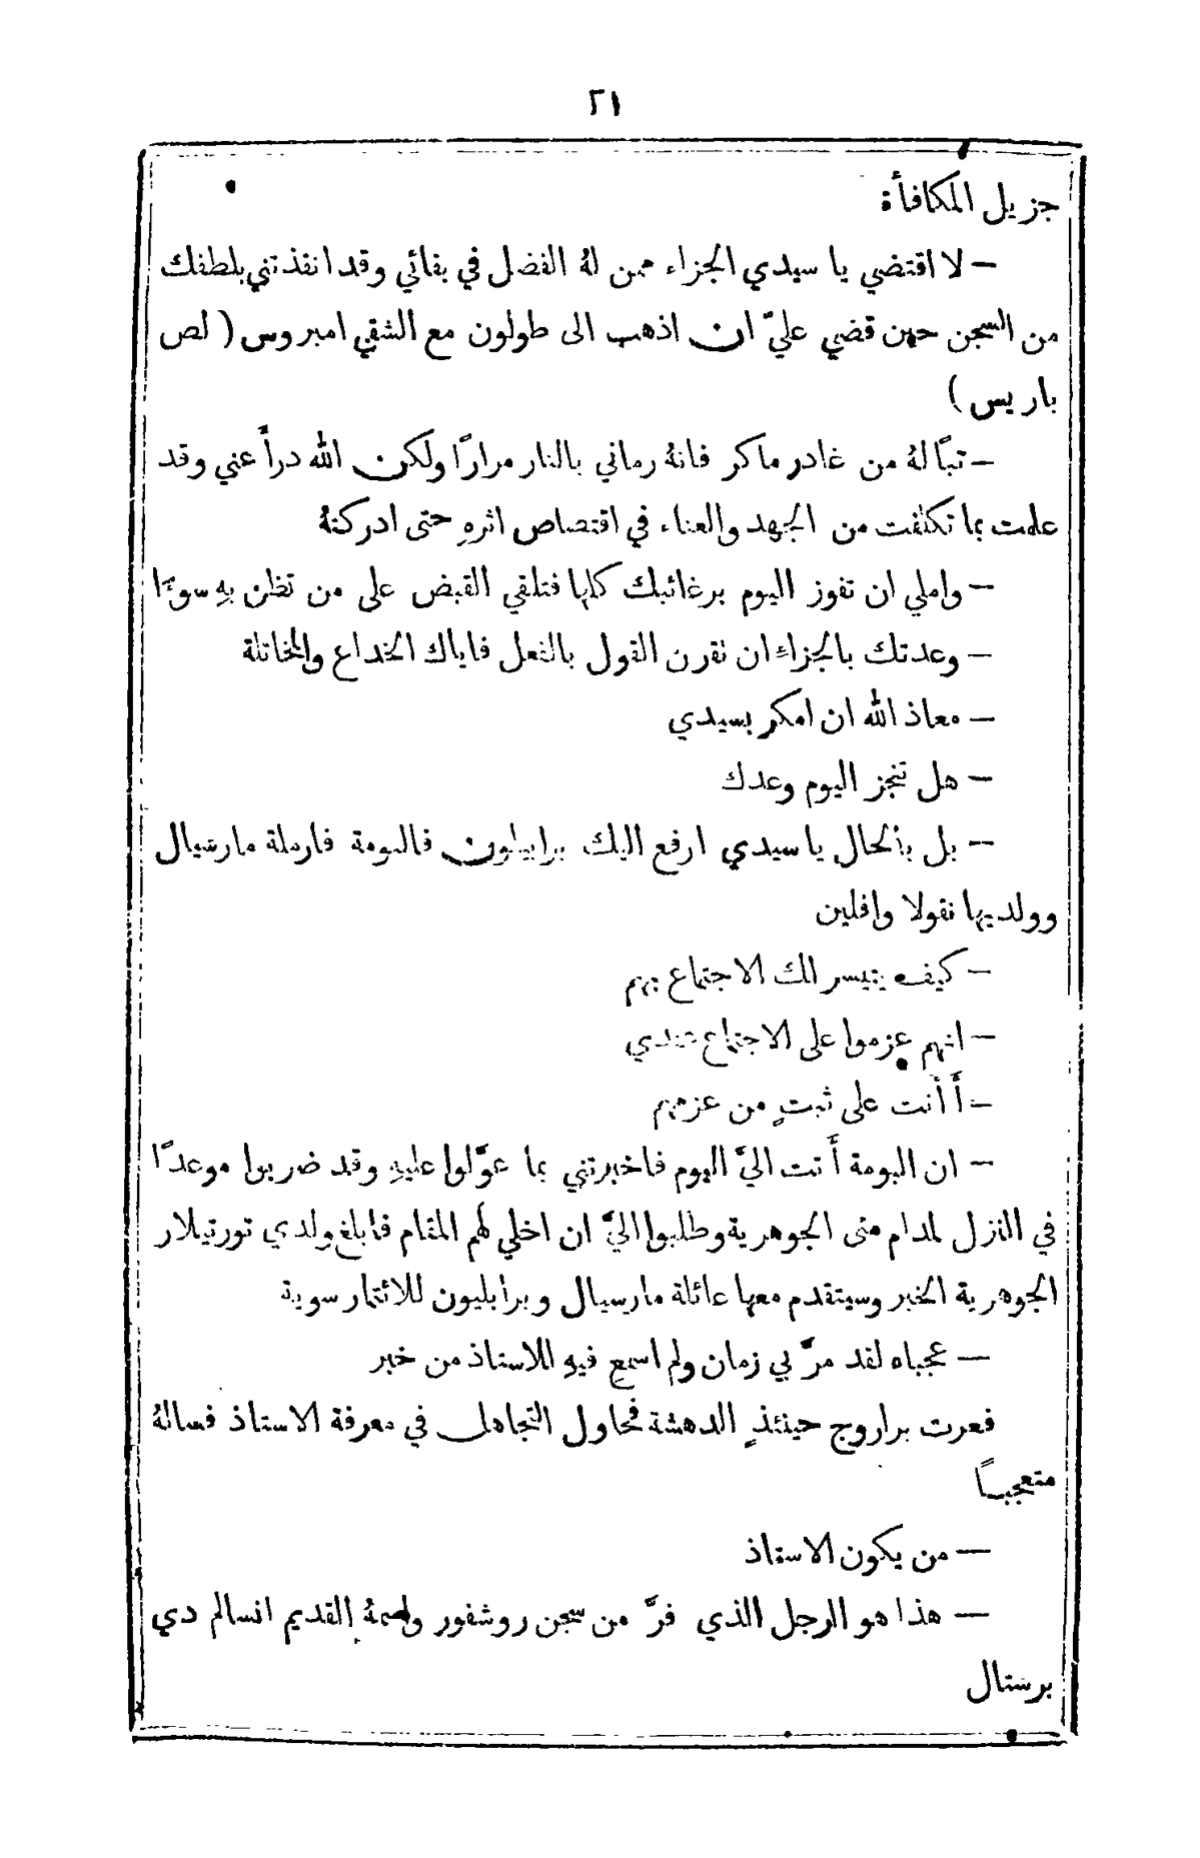 ٢١
جزيل المكافأة
— لا اقتضي يا سيدي الجزاء ممن لهُ الفضل في بقائي وقد انقذتني بلطفك
من السجن حين قضي عليَّ ان اذهب الى طولون مع الشقي امبروس ( لص
باريس )
— تبًا لهُ من غادر ماكر فانهُ رماني بالنار مرارًا ولكن الله درأَ عني وقد
علمت بما تكلفت من الجهد والعناء في اقتصاص اثرهِ حتى ادركتهُ
— واملي ان تفوز اليوم برغائبك كلها فتلقي القبض على من تظن بهِ سوءًا
— وعدتك بالجزاءِ ان تقرن القول بالفعل فاياك الخداع والمخاتلة
— معاذ الله ان امكر بسيدي
— هل تنجز اليوم وعدك
— بل بالحال يا سيدي ارفع اليك برابيليون فالبومة فارملة مارسيال
وولديها نقولا وافلين
— كيف يتيسر لك الاجتماع بهم
— انهم عزموا على الاجتماع عندي
— أَأَنت على ثبتٍ من عزمهم
— ان البومة أَتت اليَّ اليوم فاخبرتني بما عوَّلوا عليهِ وقد ضربوا موعدًا
في النزل لمدام متى الجوهرية وطلبوا اليَّ ان اخلي لهم المقام فابلغ ولدي تورتيلار
الجوهرية الخبر وسيتقدم معها عائلة مارسيال وبرابليون للائتمار سوية
— عجباه لقد مرَّ بي زمان ولم اسمع فيهِ للاستاذ من خبر
فعرت براروج حينئذٍ الدهشة فحاول التجاهل في معرفة الاستاذ فسالهُ
متعجبًا
— من يكون الاستاذ
— هذا هو الرجل الذي فرَّ من سجن روشفور واسمهُ القديم انسالم دي
برستال